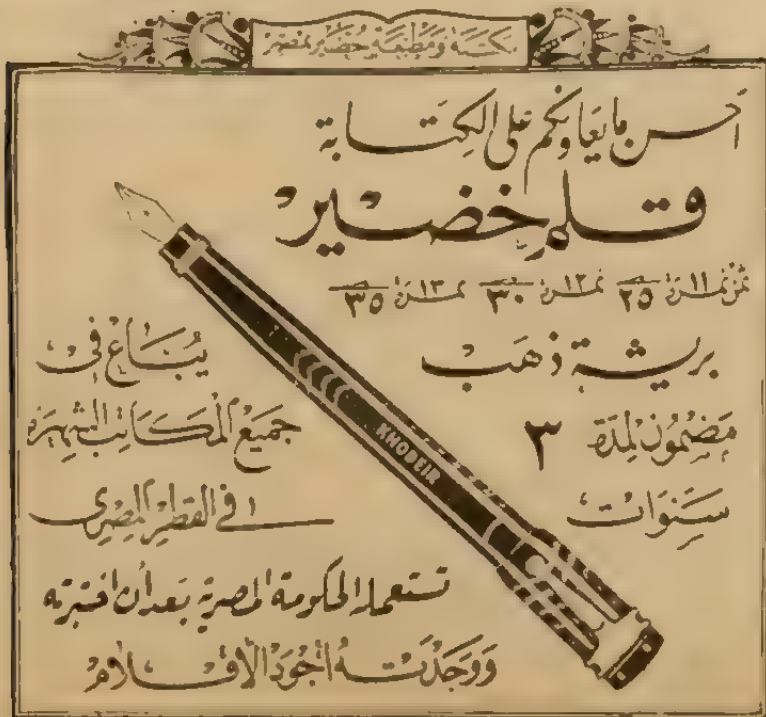 مكتبة ومطبعة خضير بمصر
أحسن ما يعاونكم على الكتابة
قلم خضير
ثمن نمرة ١١ ٢٥ نمرة ١٢ ٣٠ نمرة ١٣ ٣٥
بريشة ذهب
مضمون لمدة ٣
سنوات
يباع في
جميع المكاتب الشهيرة
في القطر المصري
KHODEIR
تستعمله الحكومة المصرية بعد أن اختبرته
ووجدته أجود الأقلام